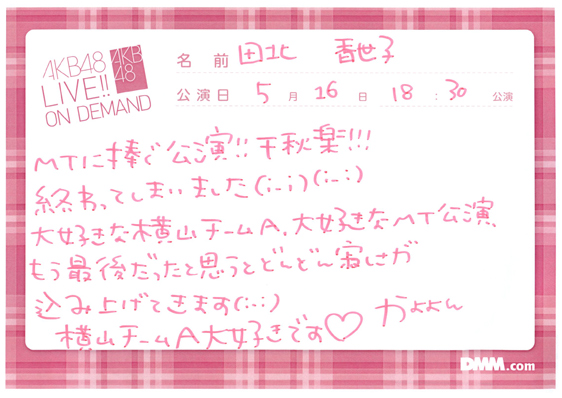 AKB48
LIVE!!
ON DEMAND
AKB
48
名 前 田北 香世子
公演日 5月 16日 18:30 公演
MTに捧ぐ公演!! 千秋楽!!!
終わってしまいました(;_;)(;_;)
大好きな横山チームA、大好きなMT公演、
もう最後だったと思うとどんどん寂しさが
込み上げてきます(;_;)
横山チームA大好きです♡ かよよん
DMM.com